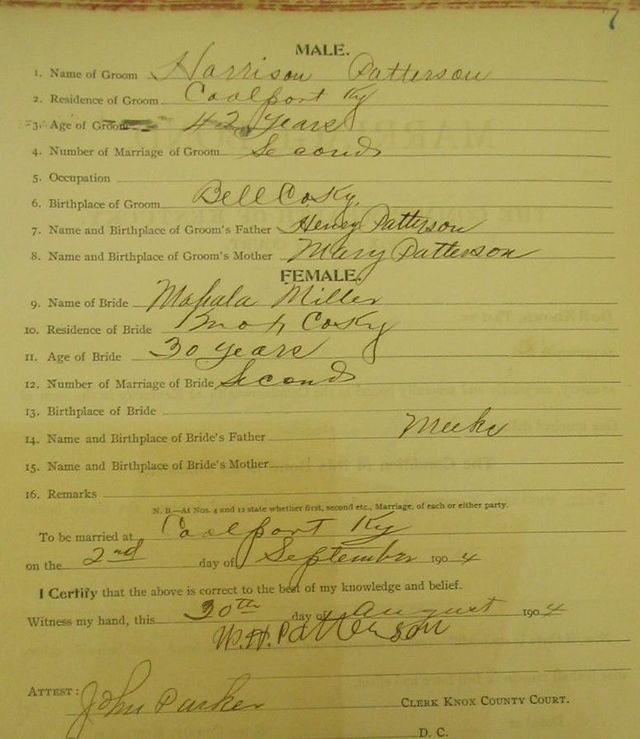 7
MALE.
1. Name of Groom Harrison Patterson
2. Residence of Groom Coalport Ky
3. Age of Groom 42 years
4. Number of Marriage of Groom Second
5. Occupation
6. Birthplace of Groom Bell Co Ky.
7. Name and Birthplace of Groom's Father Henry Patterson
8. Name and Birthplace of Groom's Mother Mary Patterson
FEMALE.
9. Name of Bride Mahala Miller
10. Residence of Bride Knox Co Ky
11. Age of Bride 30 years
12. Number of Marriage of Bride Second
13. Birthplace of Bride
14. Name and Birthplace of Bride's Father Meeks
15. Name and Birthplace of Bride's Mother
16. Remarks
N. B.—At Nos. 4 and 12 state whether first, second etc., Marriage, of each or either party.
To be married at Coalport Ky
on the 2nd day of September 1904
I Certify that the above is correct to the best of my knowledge and belief.
Witness my hand, this 30th day of August 1904
W.H. Patterson
ATTEST: John Parker
CLERK KNOX COUNTY COURT.
D. C.